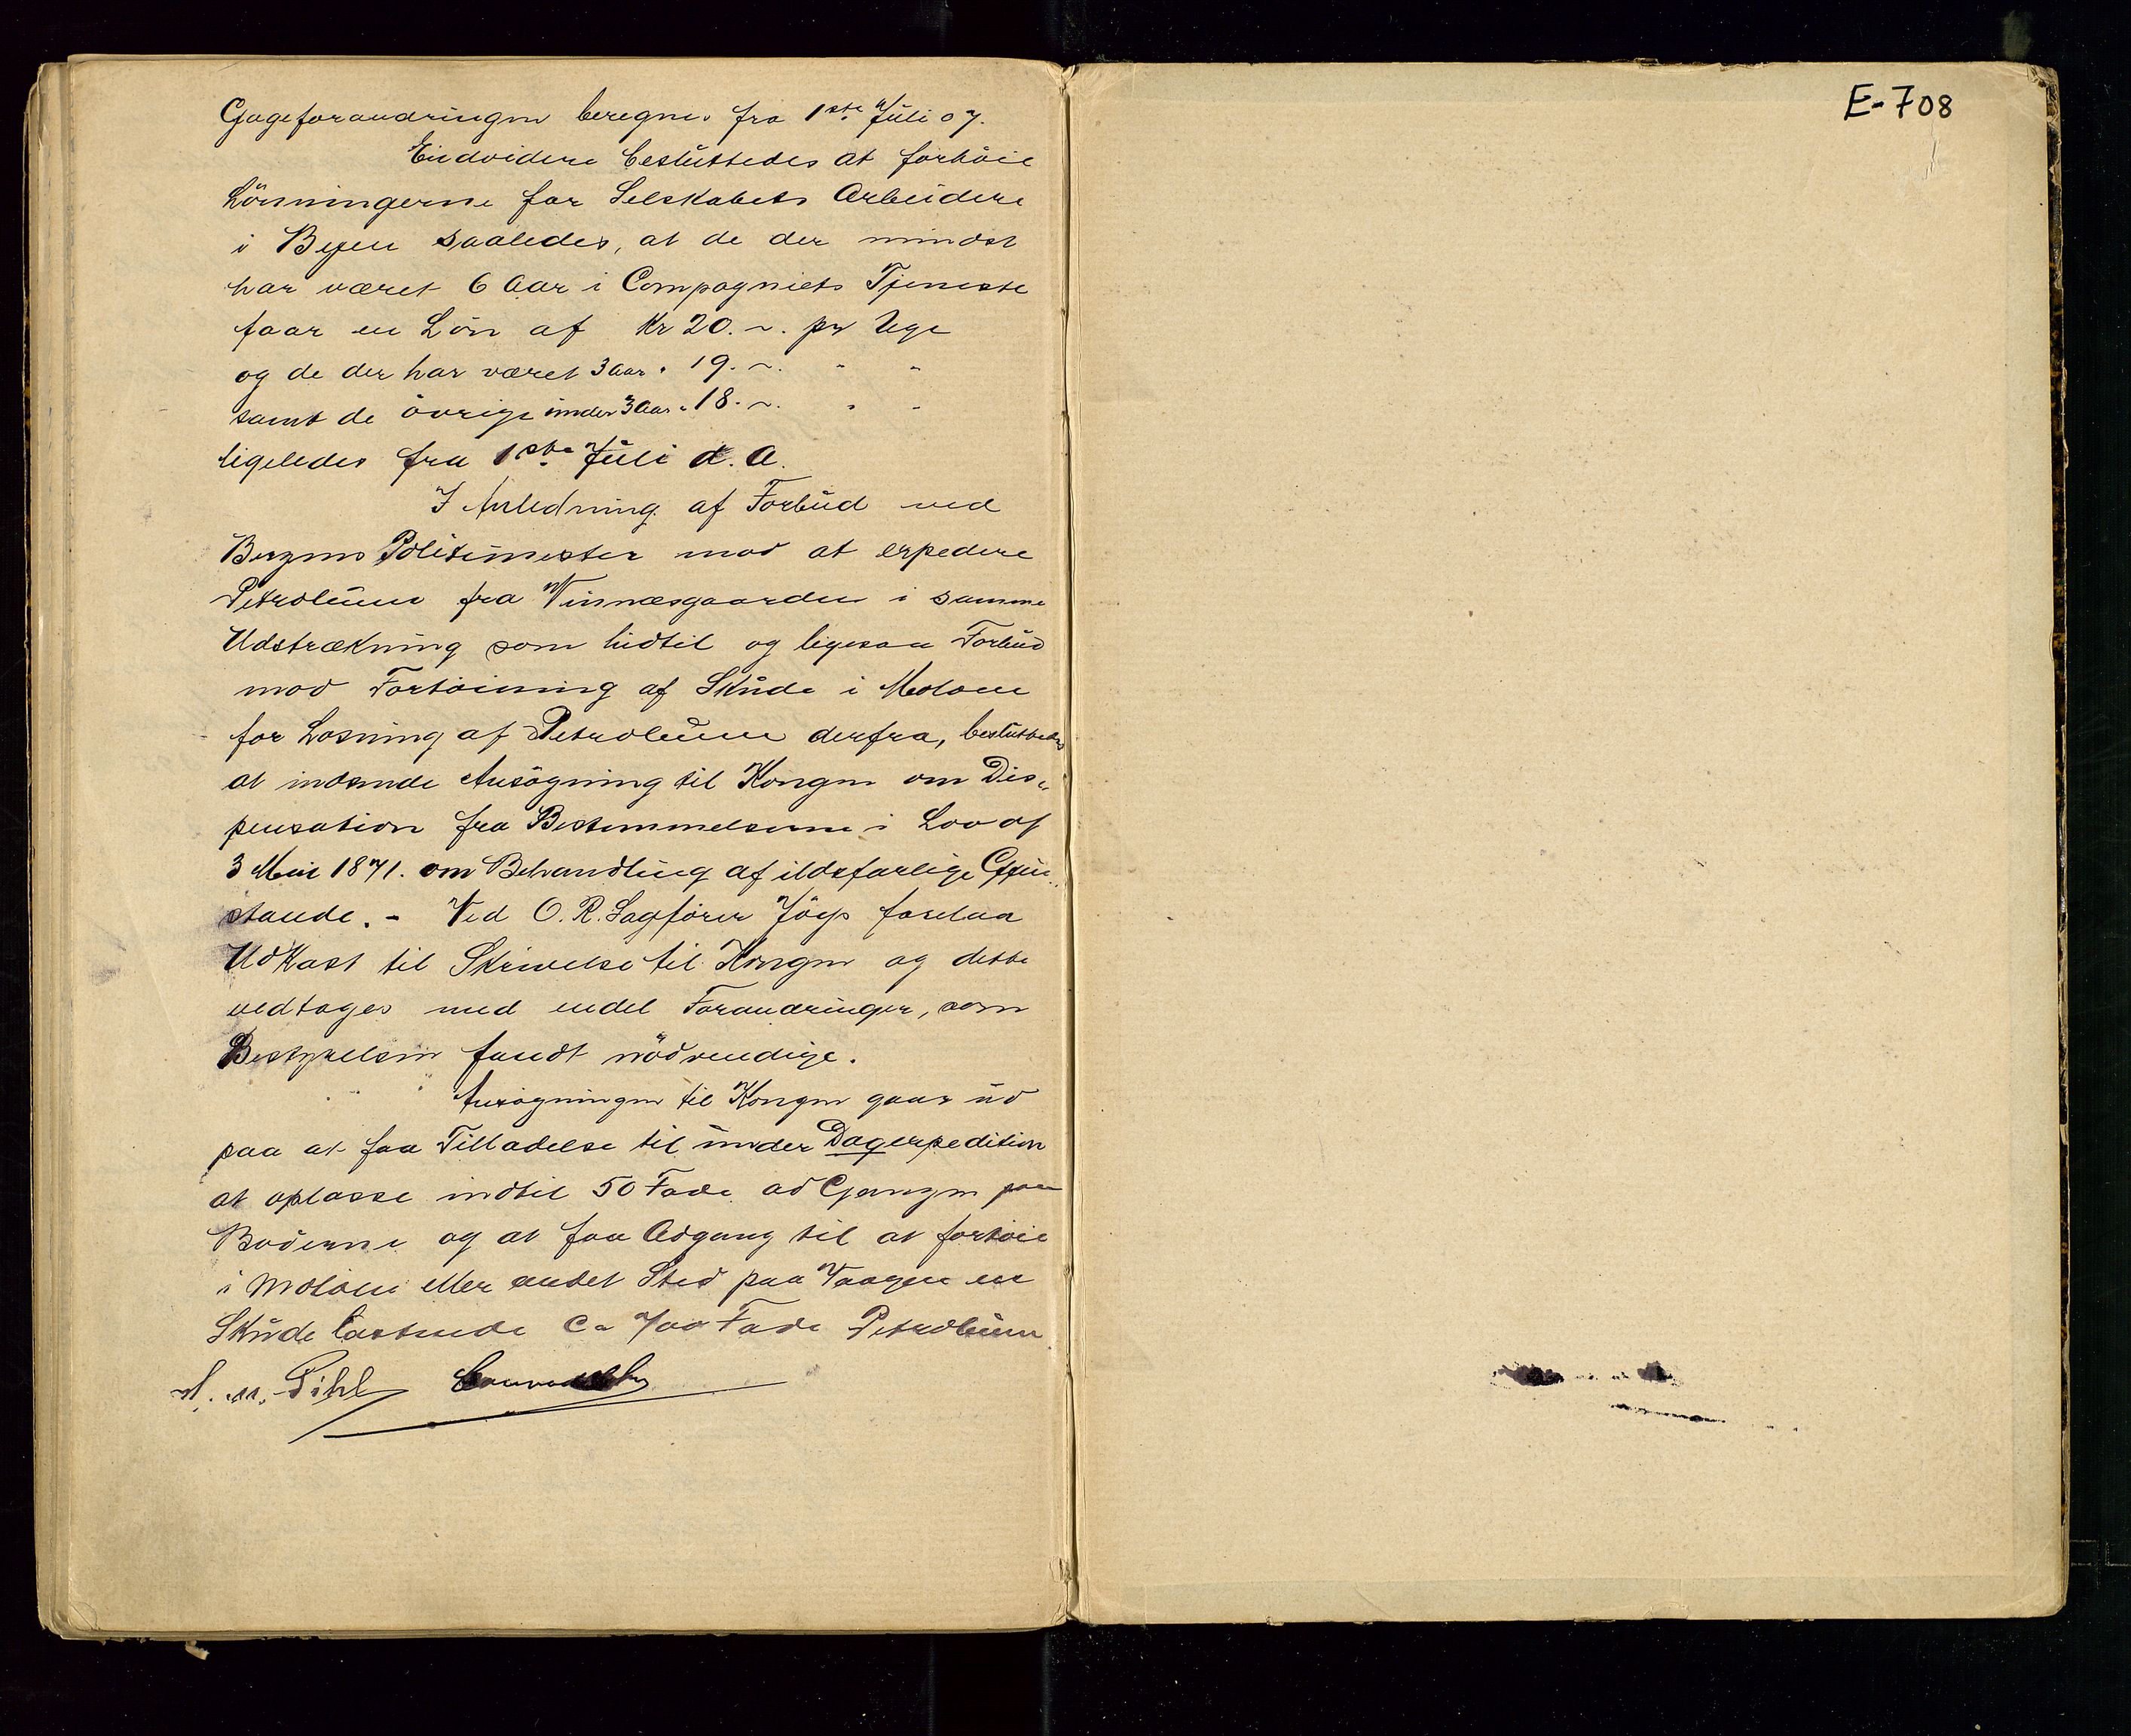 Gageforandringen beregnes fra 1ste Juli 07.
Endvidere besluttedes at forhöie
Lönningerne for Selskabets Arbeidere
i Byen saaledes, at de der mindst
har været 6 Aar i Compagniets Tjeneste
faar en Lön af Kr 20. ~. pr Uge
og de der har været 3 Aar " 19. ~. " "
samt de övrige under 3 Aar " 18. ~. " "
ligeledes fra 1ste Juli d. A.
I Anledning af Forbud ved
Bergens Politimester mod at expedere
Petroleum fra Vinnæsgaarden i samme
Udstrækning som hidtil og ligesaa Forbud
mod Fortöining af Skude i Moloen
for Losning af Petroleum derfra, besluttedes
at indsende Ansögning til Kongen om Dis„
pensation fra Bestemmelserne i Lov af
3 Mai 1871. om Behandling af ildsfarlige Gjen„
stande. - Ved O. R. Sagförer forelaa
Udkast til Skrivelse til Kongen og dette
vedtoges med endel Forandringer, som
Bestyrelsen fandt nödvendige.
Ansögningen til Kongen gaar ud
paa at faa Tilladelse til under Dagexpedition
at oplasse indtil 50 Fade ad Gangen paa
Boderne og at faa Adgang til at fortöie
i Moloen eller andet Sted paa Vaagen en
Skude lastende Ca 700 Fade Petroleum
Pihl
E-708